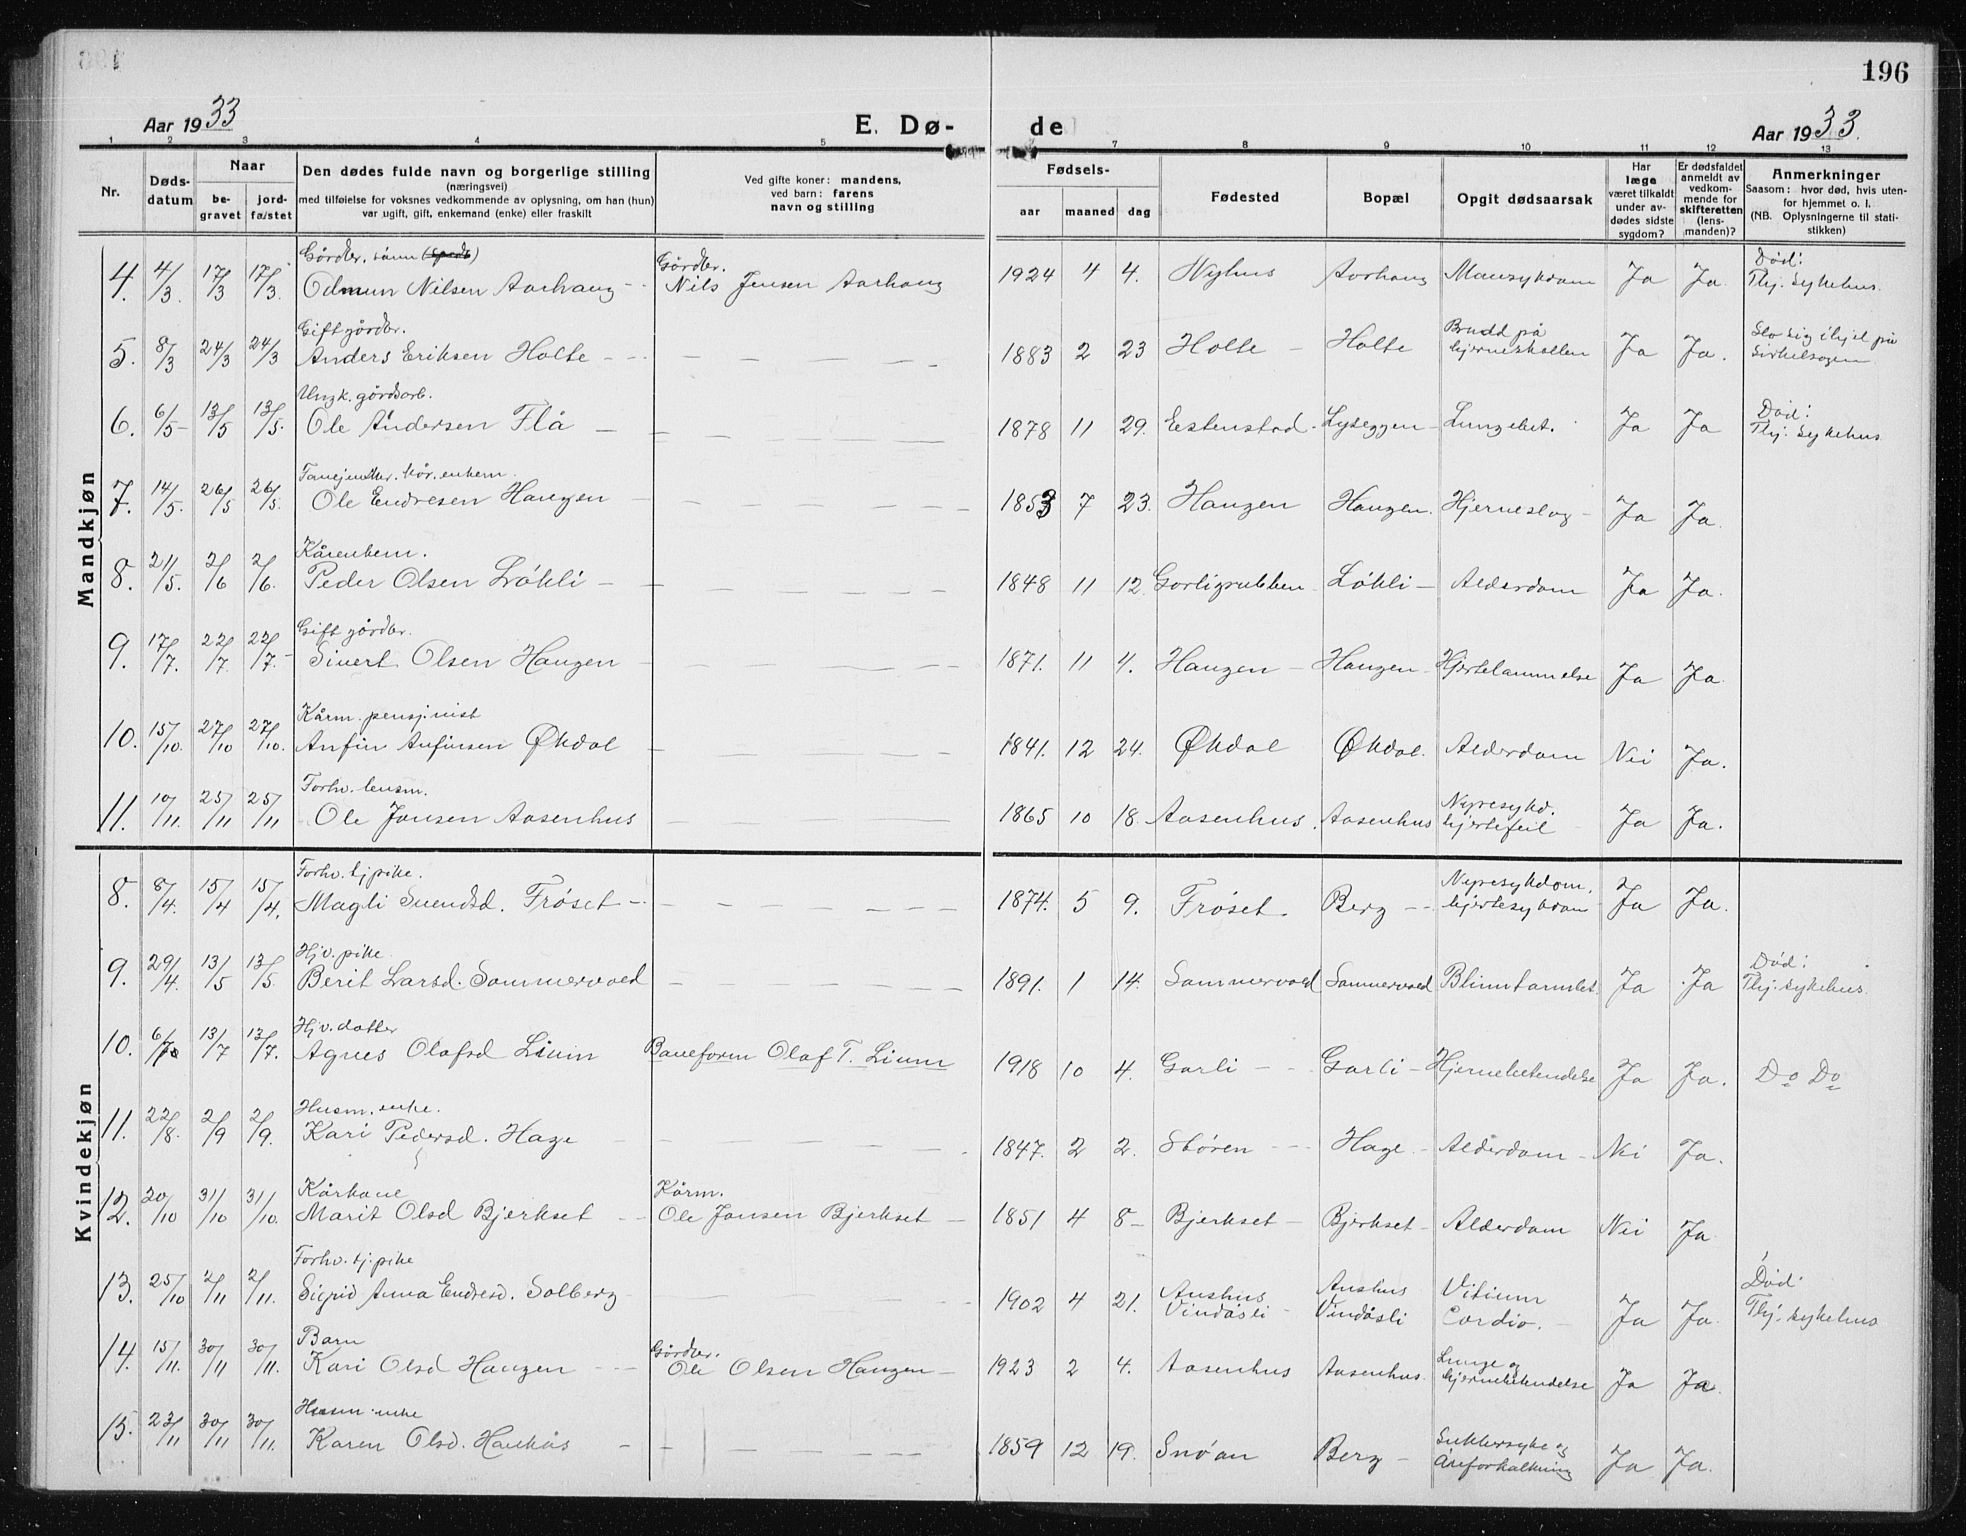 196
Aar 1933
E. Dø-
de
Aar 1933.
1 2 3 4 5 7 8 9 10 11 12 13
Nr.
Døds-
datum
Naar
be-
gravet
jord-
fæstet
Den dødes fulde navn og borgerlige stilling
(næringsvei)
med tilføielse for voksnes vedkommende av oplysning, om han (hun)
var ugift, gift, enkemand (enke) eller fraskilt
Ved gifte koner: mandens,
ved barn: farens
navn og stilling
Fødsels-
aar
maaned
dag
Fødested
Bopæl
Opgit dødsaarsak
Har
læge
været tilkaldt
under av-
dødes sidste
sygdom?
Er dødsfaldet
anmeldt av
vedkom-
mende for
skifteretten
(lens-
manden)?
Anmerkninger
Saasom: hvor død, hvis uten-
for hjemmet o. l.
(NB. Oplysningerne til stati-
stikken)
Mandkjøn
Gårdbr. sønn
Gårdbr.
Død:
4. 4/3. 17/3 17/3. Odmun Nilsen Aarhaug Nils Jensen Aarhaug 1924 4 4. Nyhus Aarhaug Mavesykdom Ja Ja. Thj. sykehus.
Gift gårdbr.
Brudd på
Slo sig ihjel på
5. 8/3 24/3 24/3 Anders Eriksen Holte 1883 2 23 Holte Holte hjerneskallen Ja Ja. Sirkelsagen
Ungk. gårdsarb.
Død:
6. 6/5 13/5 13/5. Ole Andersen Flå 1878 11 29. Estenstad Lyseggen Lungebet. Ja Ja Thj. sykehus
kår. enkem.
7. 14/5. 26/5 26/5. Ole Endresen Haugen 1853 7 23. Haugen Haugen. Hjerneslag Ja Ja.
Kårenkem.
8. 21/5. 2/6 2/6. Peder Olsen Løkli 1848 11 12. Garligrubben Løkli Alderdom Ja Ja.
Gift gårdbr.
9. 17/7. 22/7. 22/7. Sivert Olsen Haugen 1871. 11 4. Haugen Haugen Hjertelammelse Ja Ja.
Kårm. pensjonist
10. 15/10. 27/10 27/10. Anfin Anfinsen Økdal 1841. 12 24. Økdal Økdal. Alderdom Nei Ja.
Forhv. lensm.
Nyresykd.
11. 10/11. 25/11 25/11 Ole Jonsen Aasenhus 1865 10 18. Aasenhus. Aasenhus hjertefeil Ja Ja.
Kvindekjøn
Forhv. tj.pike.
Nyresykdom.
8. 8/4. 15/4 15/4. Magli Svendsd. Frøset 1874. 5 9. Frøset. Berg hjertesykdom Ja Ja.
Hjv. pike
Død:
9. 29/4. 13/5 13/5. Berit Larsd. Sommervold 1891. 1 14. Sommervold Sommervold Blinntarmbet. Ja Ja Thj. sykehus.
Hjv. datter
10. 6/7 13/7 13/7. Agnes Olafsd Lium Baneform Olaf T. Lium 1918 10 4. Garli Garli Hjernebetendelse Ja Ja. Do Do
Husm. enke.
11. 22/8. 2/9 2/9. Kari Pedersd. Hage 1847. 2 2. Støren Hage Alderdom Nei Ja.
Kårkone
Kårm.
12. 20/10 31/10 31/10. Marit Olsd Bjerkset Ole Jonsen Bjerkset 1851 4 8 Bjerkset Bjerkset Alderdom Nei Ja.
Forhv. tj.pike
Aushus
Aushus
Vitium
Død.
13. 25/10 2/11 2/11. Sigrid Anna Endresd. Solberg 1902 4 21. Vindåsli Vindåsli Cordio. Ja Ja. Thj. sykehus
Barn
Gårdbr.
Lunge og
14. 15/11. 30/11 30/11. Kari Olsd Haugen Ole Olsen Haugen 1923 2 4. Aasenhus Aasenhus. hjernebetendelse Ja Ja.
Husm. enke
Sukkersyke og
15. 23/11 30/11 30/11. Karen Olsd. Haukås 1859 12 19. Snøan Berg Åreforkalkning Ja Ja.